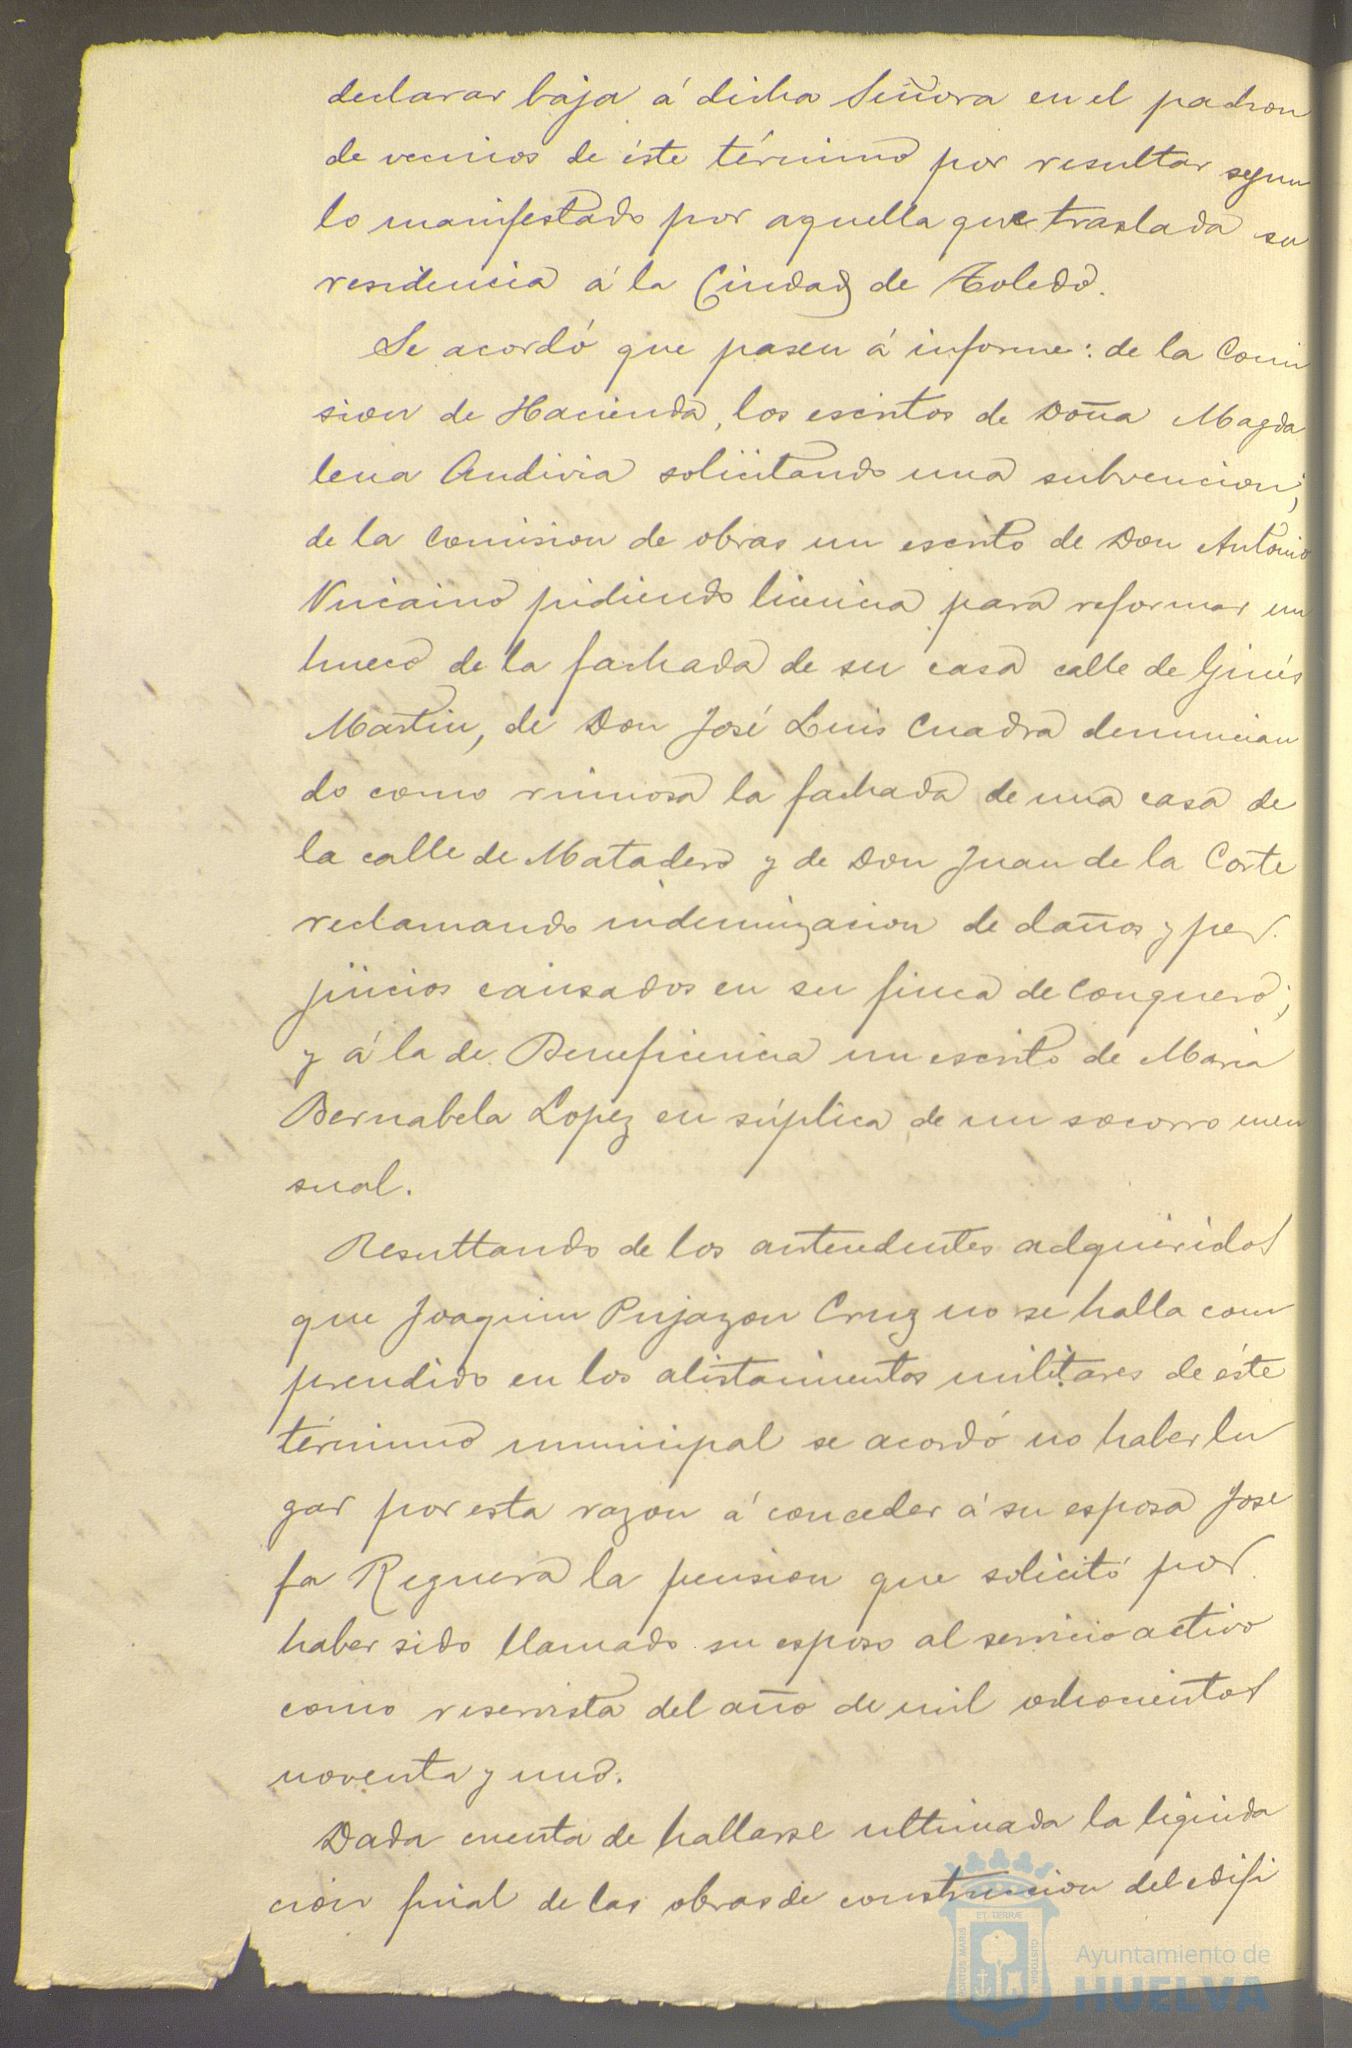 declarar baja á dicha Señora en el padron
de vecinos de éste término por resultar segun
lo manifestado por aquella que traslada su
residencia á la Ciudad de Toledo.
Se acordó que pasen á informe: de la Comi
sion de Hacienda, los escritos de Doña Magda
lena Andivia solicitando una subvencion;
de la Comision de obras un escrito de Don Antonio
Vizcaino pidiendo licencia para reformar un
hueco de la fachada de su casa calle de Ginés
Martin, de Don José Luis Cuadra denuncian
do como ruinosa la fachada de una casa de
la calle de Matadero y de Don Juan de la Corte
reclamando indemnizacion de daños y per
juicios causados en su finca de Conquero;
y á la de Beneficencia un escrito de Maria
Bernabela Lopez en súplica de un socorro men
sual.
Resultando de los antecedentes adquiridos
que Joaquin Pujazon Cruz no se halla com
prendido en los alistamientos militares de éste
término municipal se acordó no haber lu
gar por esta razon á conceder á su esposa Jose
fa Reguera la pension que solicitó por
haber sido llamado su esposo al servicio activo
como reservista del año de mil ochocientos
noventa y uno.
Dada cuenta de hallarse ultimada la liquida
cion final de las obras de construccion del edifi
Ayuntamiento de
HUELVA